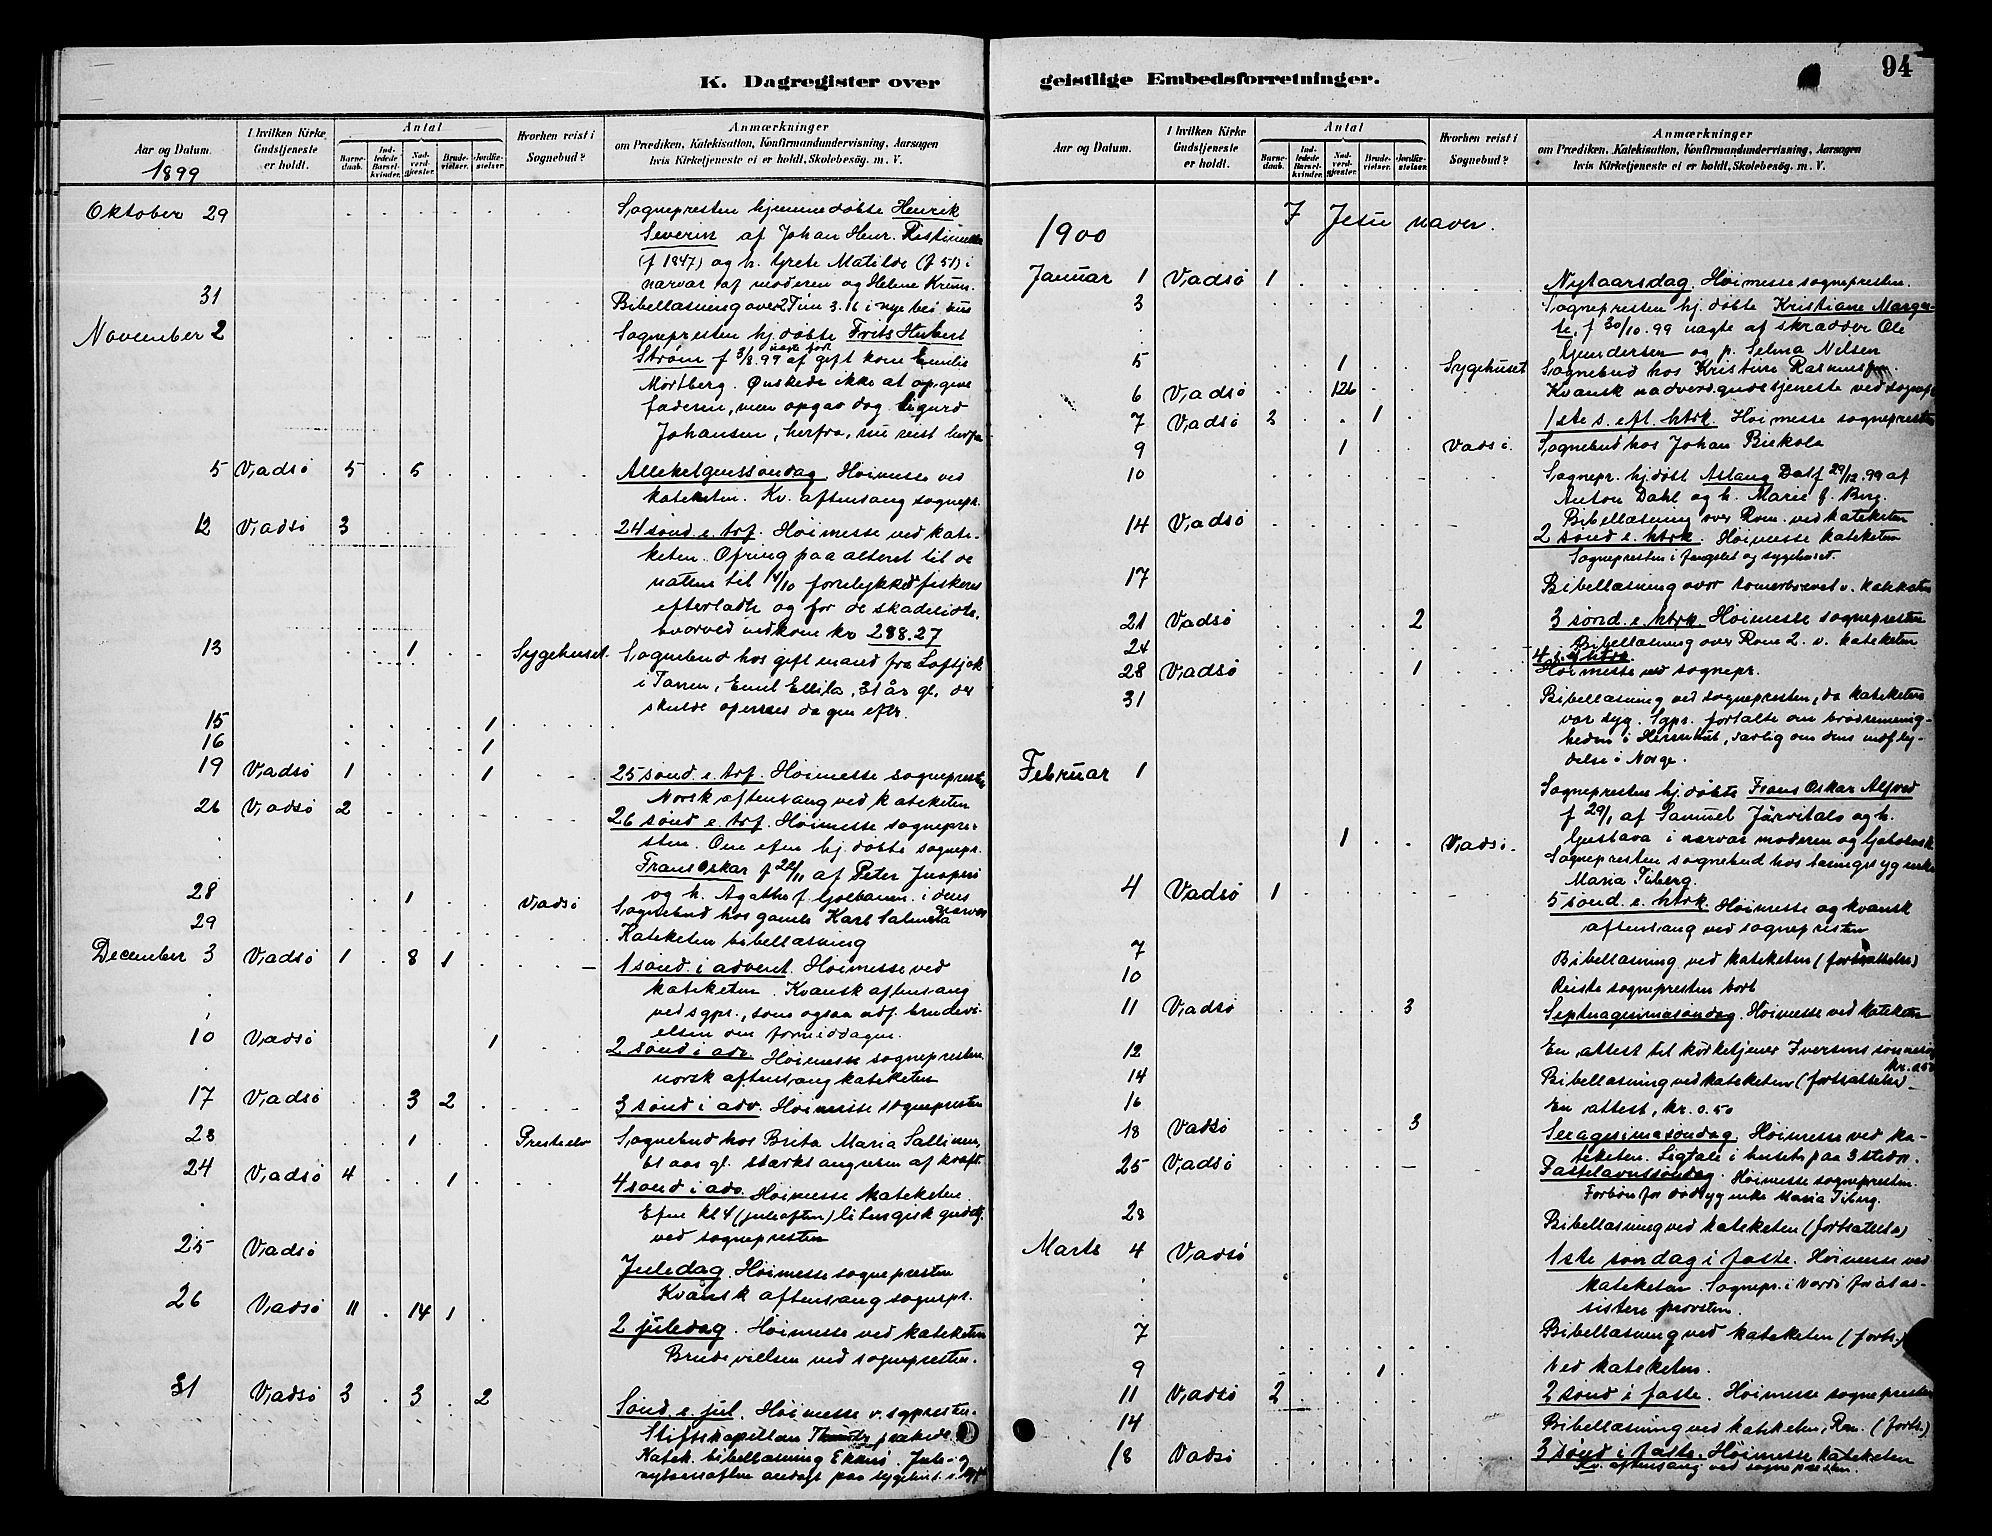 K. Dagregister over
Aar og Datum.
1899
I hvilken Kirke Gudstjeneste er holdt.
Antal
Barnedaab.
Indledede Barselkvinder.
Nadverdgjester.
Brudevielser.
Jordfæstelser.
Hvorhen reist i Sognebud?
Anmærkninger
om Prædiken, Katekisation, Konfirmandundervisning, Aarsagen
hvis Kirketjeneste ei er holdt, Skolebesøg. m. V.
Oktober 29 Sognepresten hjemmedøbte Henrik
Severin af Johan Henr.
(f 1847) og h. Grete Matilde (f 51) i
nærvær af moderen og Helene
31 Bibellæsning over 2 Tim 3.16 i nye
November 2 Sognepresten hj. døbte Frits Hubert
Strøm f 3/8.99 af gift kone Emilie
Mortberg. Ønskede ikke at opgive
faderen, men opgav dog Sigurd
Johansen, herfra, nu reist
5 Vadsø 5 5 Allehelgenssøndag. Høimesse ved
kateketen. Kv. aftensang sognepr.
12 Vadsø 3 24 sønd. e. trf. Høimesse ved kate-
keten. Ofring paa alteret til de
natten til 4/10 forulykked fiskeres
efterladte og for de skadelidte,
hvorved indkom kr 288.27
13 1 Sygehuset. Sognebud hos gift mand fra
i Tanen, Emil Ellila, 31 år gl. der
skulde opereres dagen eftr.
15 1
16 1
19 Vadsø 1 1 25 sønd. e. trf. Høimesse sognepresten
Norsk aftensang ved kateketen
26 Vadsø 2 26 sønd e. trf. Høimesse sognepre-
sten. hj. døbte sognepr.
Frans Oskar f 22/11 af Peter
og h. Agathe f. i dens
28 1 Vadsø Sognebud hos gamle Karl
29 Kateketen bibellæsning
December 3 Vadsø 1 8 1 1 sønd. i advent. Høimesse ved
kateketen. Kvænsk aftensang
ved sgpr., som ogsaa udf. brudevi-
elsen om formiddagen.
10 Vadsø 1 2 sønd i adv. Høimesse sognepresten
norsk aftensang kateketen
17 Vadsø 3 2 3 sønd i adv. Høimesse sognepresten
23 1 Sognebud hos Brita Maria Sallinen,
61 aar gl. stærkt angreben af kræft.
24 Vadsø 4 1 4 sønd i adv. Høimesse kateketen.
kl 4 (juleaften) liturgisk gudstj.
ved sognepresten
25 Vadsø Juledag. Høimesse sognepresten
Kvænsk aftensang sognepr.
26 Vadsø 11 14 1 2 juledag. Høimesse ved kateketen
Brudevielsen ved sognepresten.
31 Vadsø 3 3 2 Sønd. e. jul. Høimesse v. sgpresten.
Stiftskapellan
Katek. bibellæsning Ekkerø. Jule- og
nytaarsaften andagt paa sygehuset
geistlige Embedsforretninger.
94
Aar og Datum.
I hvilken Kirke Gudstjeneste er holdt.
Antal
Barnedaab.
Indledede Barselkvinder.
Nadverdgjester.
Brudevielser.
Jordfæstelser.
Hvorhen reist i Sognebud?
Anmærkninger
om Prædiken, Katekisation, Konfirmandundervisning, Aarsagen
hvis Kirketjeneste ei er holdt, Skolebesøg. m. V.
I Jesu navn.
1900
Januar 1 Vadsø 1 Nytaarsdag. Høimesse sognepresten.
3 Sognepresten hj. døbte Kristiane Margre-
te, f 30/10.99 uægte af skrædder Ole
Gundersen og p. Selma Nilsen
5 1 Sygehuset Sognebud hos Kristine Rasmus
6 Vadsø 126 Kvænsk nadverdgudstjeneste ved sognepr
7 Vadsø 3 1 1ste s. eft. htrk. Høimesse sognepresten
9 1 Vadsø. Sognebud hos Johan
10 Sognepr. hj. døbt Aslaug Dal f 29/12.99 af
Anton Dahl og h. Marie f. Berg.
Bibellæsning over Rom. ved kateketen
14 Vadsø 2 sønd e. htrk. Høimesse kateketen
Sognepresten i fængslet og sygehuset.
17 Bibellæsning over romerbrevet v. kateketen
21 Vadsø 2 3 sønd. e. htrk. Høimesse sognepresten
24 Bibellæsning over Rom 2. v. kateketen
4 s. e. htrk.
28 Vadsø 1 Høimesse ved sognepr.
31 Bibellæsning ved sognepresten, da kateketen
var syg. Sgpr. fortalte om brødremenig-
heden i Herrnhut, særlig om dens indfly-
delse i Norge.
Februar 1 Sognepresten hj. døbte Frans Oskar Alfred
f 29/1 af Samuel Järvitalo og h.
Gustava i nærvær moderen og
1 Vadsø. Sognepresten sognebud hos enke
Maria Tiberg.
4 Vadsø 1 5 sønd. e. htrk. Høimesse og kvænsk
aftensang ved sognepresten
7 Bibellæsning ved kateketen (fortsættelse)
10 Reiste sognepresten bort
11 Vadsø 3 Septuagesimasøndag. Høimesse ved kateketen
12 En attest til kirketjener Iversens
kr. 0.50
14 Bibellæsning ved kateketen (fortsættelse)
16 En attest, kr. 0.50
18 Vadsø 3 Sexagesimasøndag. Høimesse ved ka-
teketen. Ligtale i huset paa 3 steder.
25 Vadsø – Fastelavnssøndag. Høimesse sognepresten.
Forbøn for dødssyg enke Maria Tiberg.
28 Bibellæsning ved kateketen (fortsættelse)
Marts 4 Vadsø 1ste søndag i faste. Høimesse ved
kateketen. Sognepr. i Vardø for at as-
sistere provsten.
7 Bibellæsning ved kateketen (forts.)
9 1 Ved kateketen.
11 Vadsø 2 2 sønd i faste. Høimesse sognepresten
14 Bibellæsning ved kateketen, Rom. (forts.)
18 Vadsø 3 sønd i faste. Høimesse kateketen
Kv. aftensang ved sognepresten.